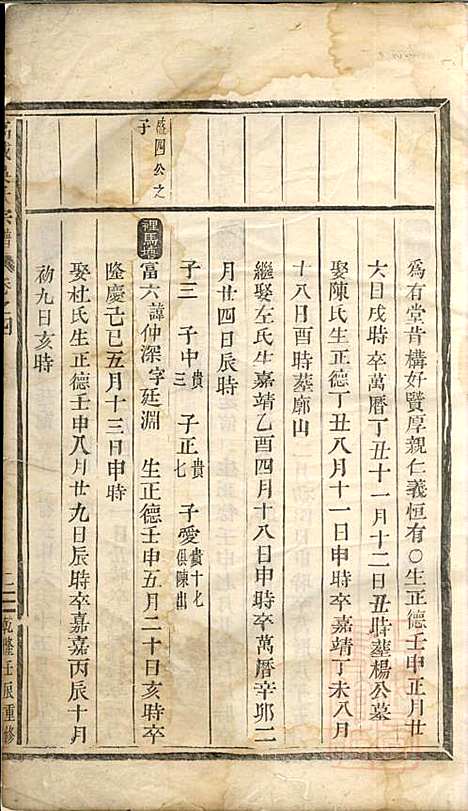 爲有堂昔構好賢厚親仁義恒有○生正德壬申正月廿
六日戌時卒萬曆丁丑十一月十二日丑時葬楊公墓
娶陳氏生正德丁丑八月十一日申時卒嘉靖丁未八月
十八日酉時葬廓山
繼娶左氏生嘉靖乙酉四月十八日申時卒萬曆辛卯二
月廿四日辰時
子三 子中貴三 子正貴七 子愛貴十七 俱陳出
蓝四公之子
裡馬塘 富六諱仲深字廷淵 生正德壬申五月二十日亥時卒
隆慶己巳五月十三日申時
娶杜氏生正德壬申八月廿九日辰時卒嘉嘉丙辰十月
初九日亥時
宗譜 卷之四
乾隆壬辰重修